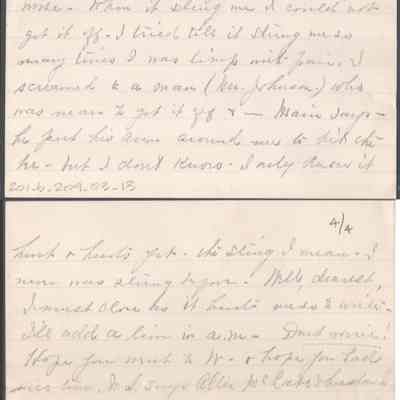 When it stung me I could not
get it off. I tried till it stung me so
many times I was limp with pain. I
screamed to a man (Mr. Johnson) who
was near to get it off & — Main says —
he put his arm around me to hit the
he - but I don't know. I only knew it
2016.209.03-13
4/4
hurt & hurts yet - the sting I mean. I
never was stung before. Well, dearest,
I must close as it hurts me so to write.
I'll add a line in a.m. - Don't worry!
Hope you went to W- & hope you had a
nice time. M.L. says Allie husband